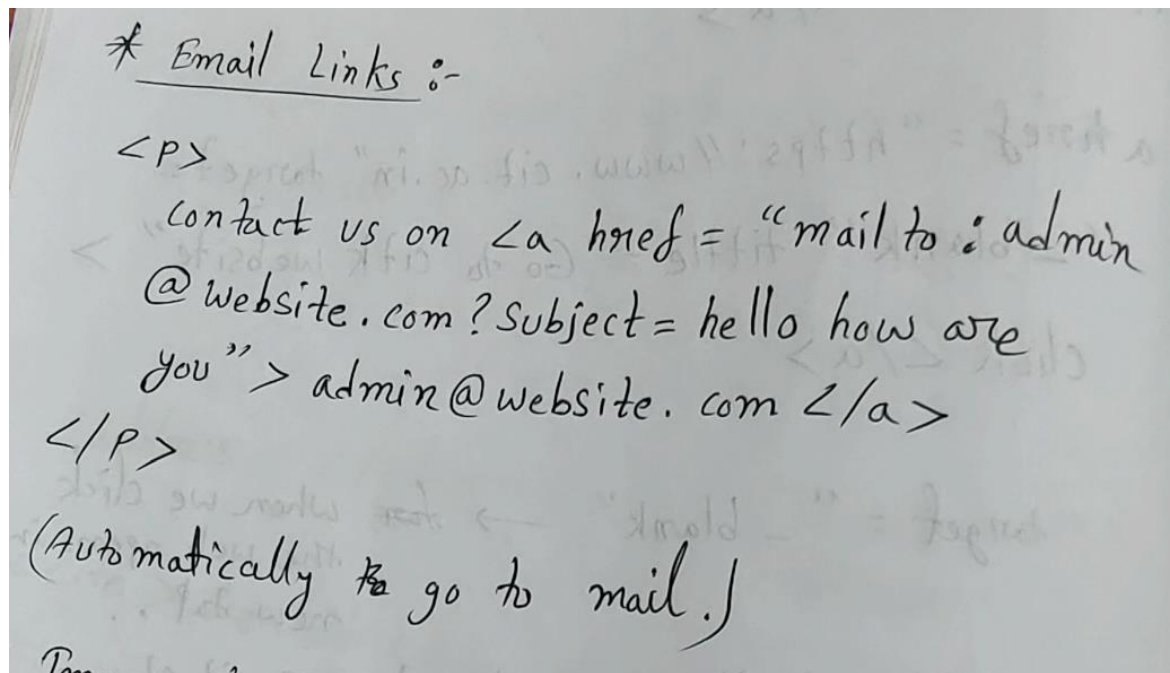 * Email Links :-
<p>
contact us on <a href = "mail to : admin
@ website. com ? Subject = hello how are
you"> admin@website. com </a>
</p>
(Automatically go to mail.)